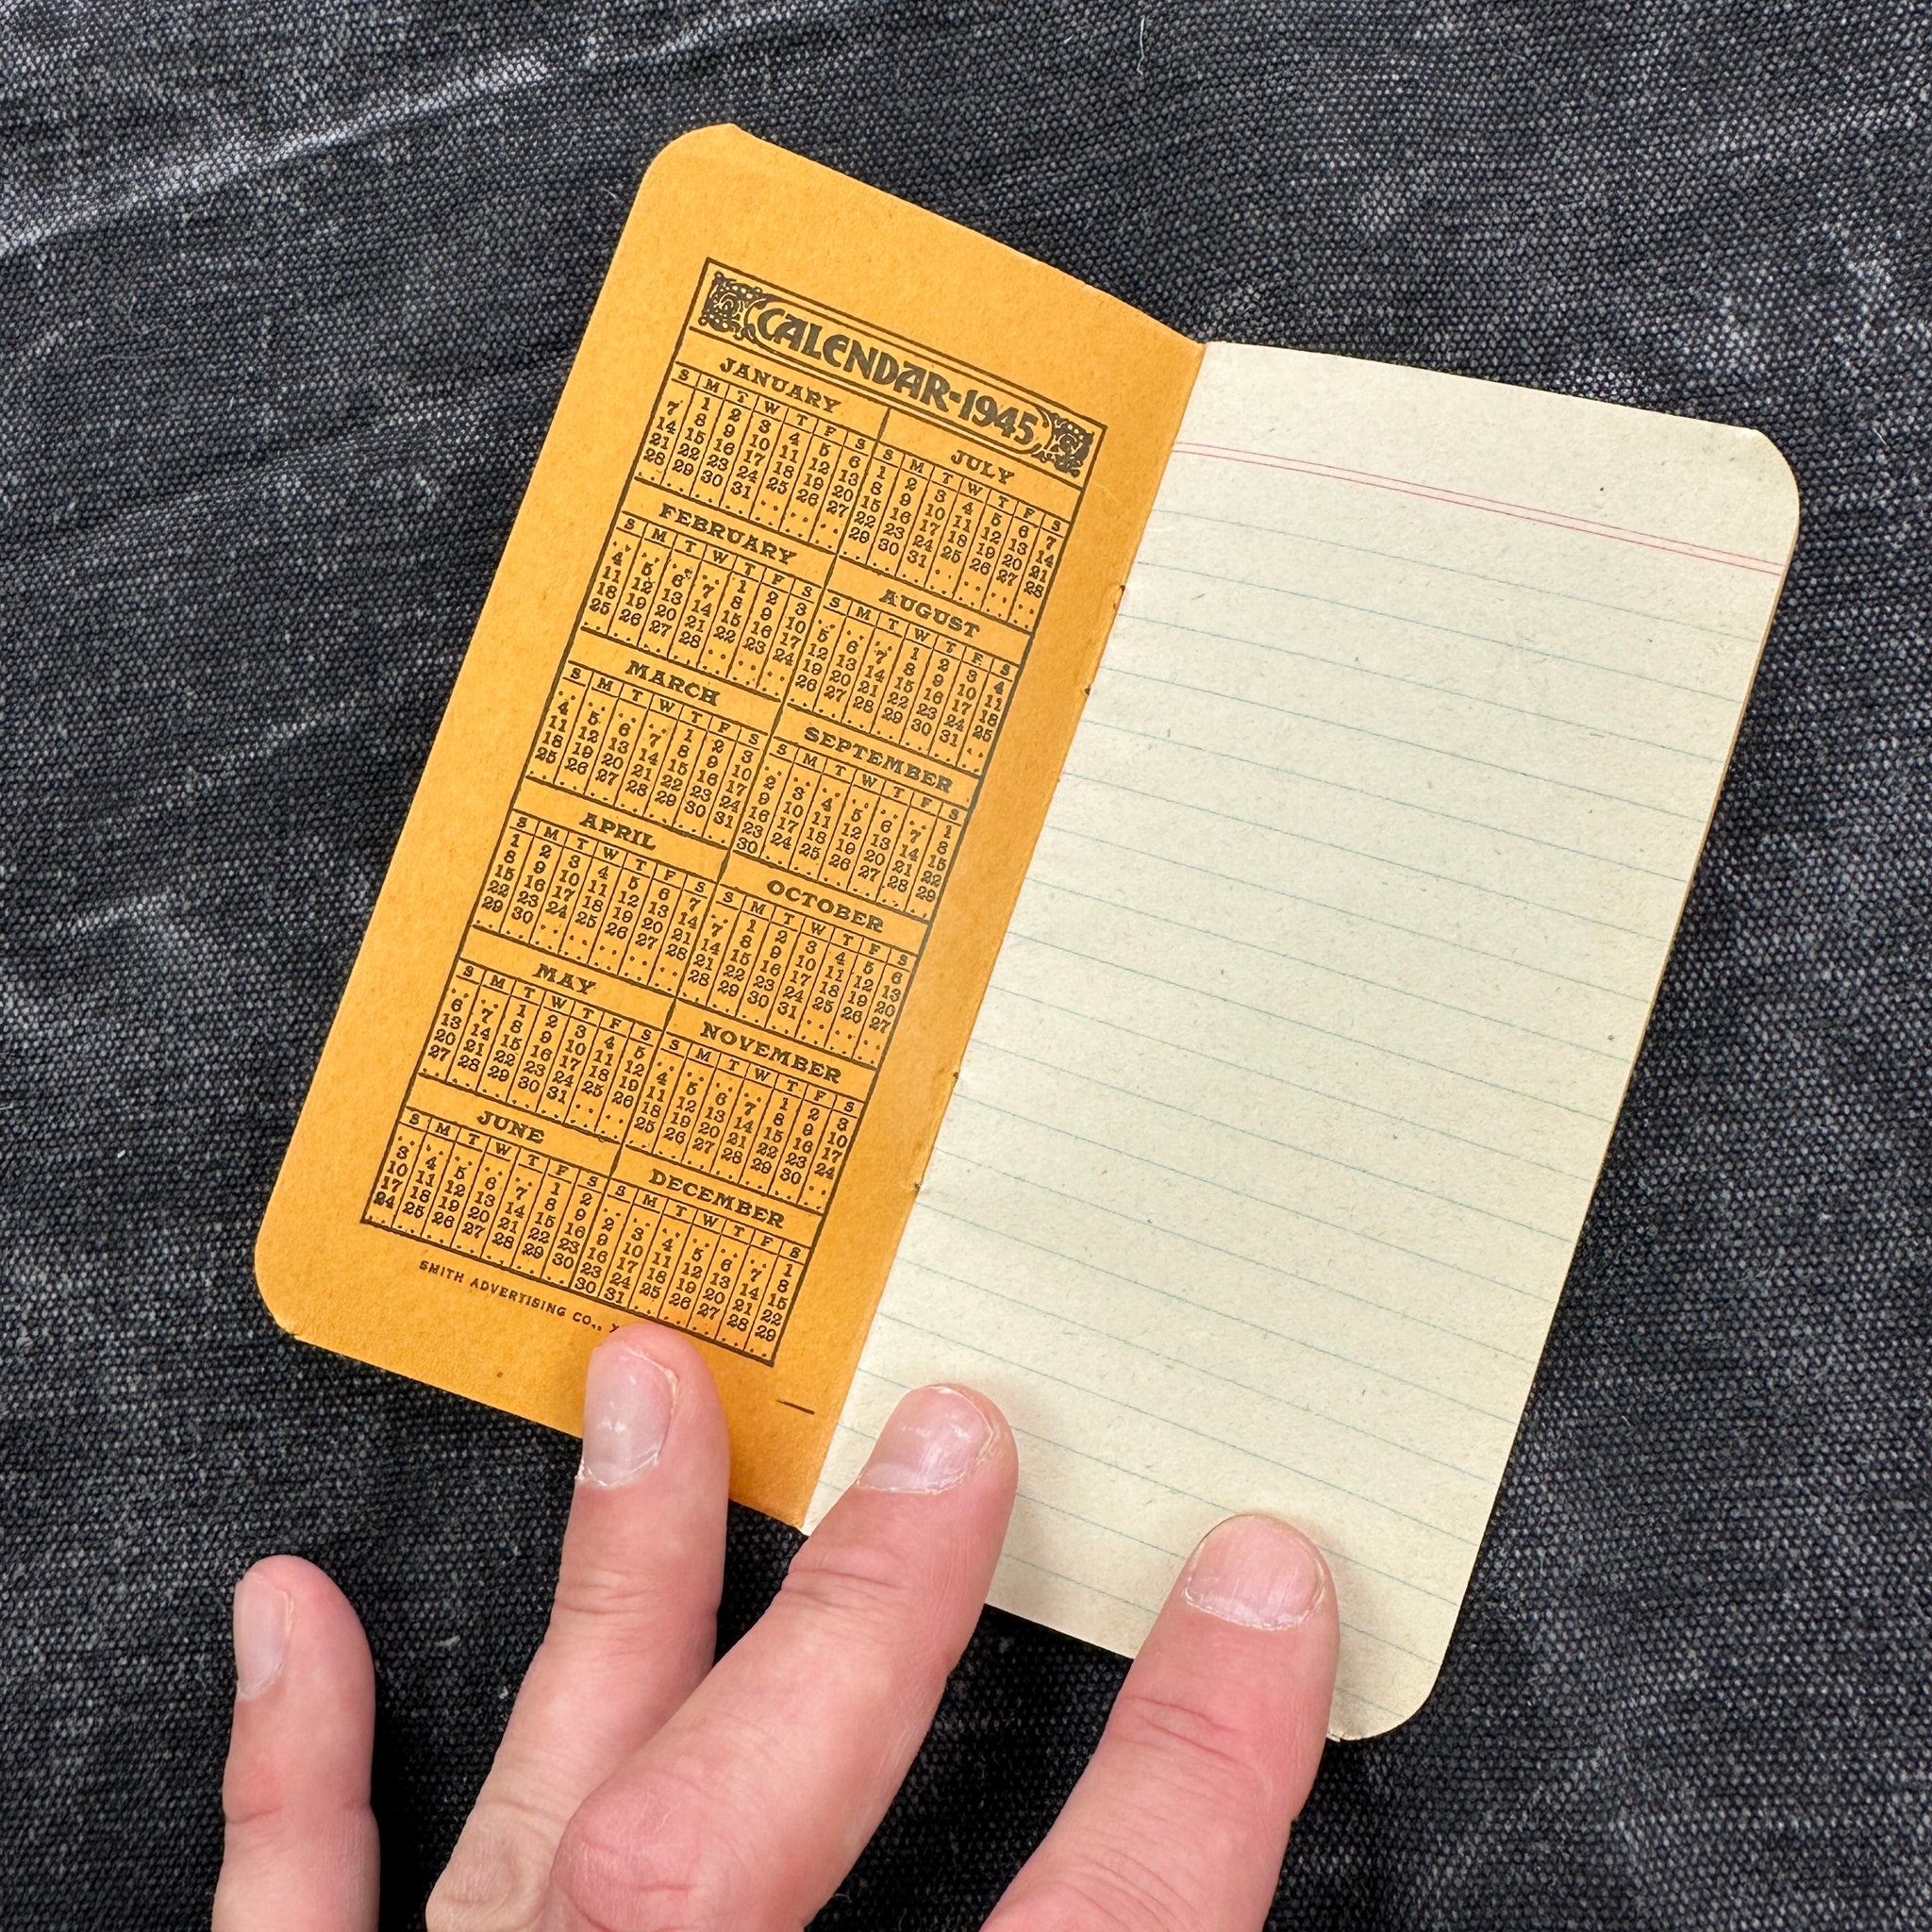 CALENDAR-1945
JANUARY
S M T W T F S
1 2 3 4 5 6
7 8 9 10 11 12 13
14 15 16 17 18 19 20
21 22 23 24 25 26 27
28 29 30 31
FEBRUARY
S M T W T F S
1 2 3
4 5 6 7 8 9 10
11 12 13 14 15 16 17
18 19 20 21 22 23 24
25 26 27 28
MARCH
S M T W T F S
1 2 3
4 5 6 7 8 9 10
11 12 13 14 15 16 17
18 19 20 21 22 23 24
25 26 27 28 29 30 31
APRIL
S M T W T F S
1 2 3 4 5 6 7
8 9 10 11 12 13 14
15 16 17 18 19 20 21
22 23 24 25 26 27 28
29 30
MAY
S M T W T F S
1 2 3 4 5
6 7 8 9 10 11 12
13 14 15 16 17 18 19
20 21 22 23 24 25 26
27 28 29 30 31
JUNE
S M T W T F S
1 2
3 4 5 6 7 8 9
10 11 12 13 14 15 16
17 18 19 20 21 22 23
24 25 26 27 28 29 30
JULY
S M T W T F S
1 2 3 4 5 6 7
8 9 10 11 12 13 14
15 16 17 18 19 20 21
22 23 24 25 26 27 28
29 30 31
AUGUST
S M T W T F S
1 2 3 4
5 6 7 8 9 10 11
12 13 14 15 16 17 18
19 20 21 22 23 24 25
26 27 28 29 30 31
SEPTEMBER
S M T W T F S
1
2 3 4 5 6 7 8
9 10 11 12 13 14 15
16 17 18 19 20 21 22
23 24 25 26 27 28 29
30
OCTOBER
S M T W T F S
1 2 3 4 5 6
7 8 9 10 11 12 13
14 15 16 17 18 19 20
21 22 23 24 25 26 27
28 29 30 31
NOVEMBER
S M T W T F S
1 2 3
4 5 6 7 8 9 10
11 12 13 14 15 16 17
18 19 20 21 22 23 24
25 26 27 28 29 30
DECEMBER
S M T W T F S
1
2 3 4 5 6 7 8
9 10 11 12 13 14 15
16 17 18 19 20 21 22
23 24 25 26 27 28 29
30 31
SMITH ADVERTISING CO.,